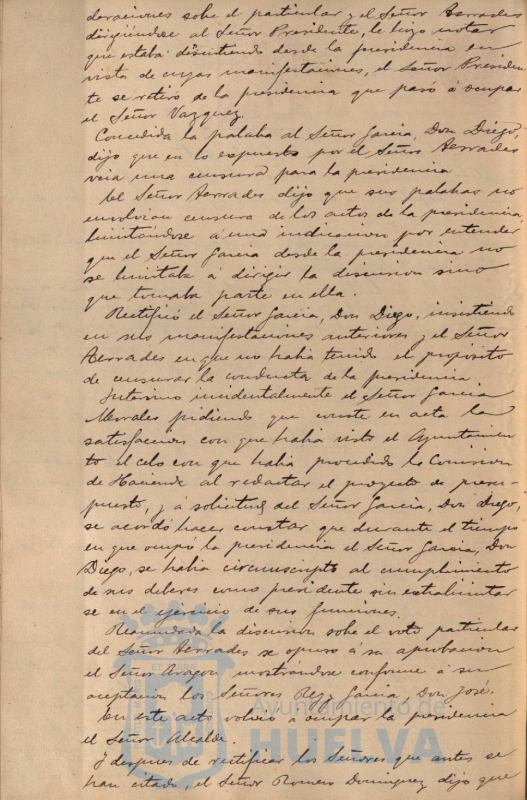 deraciones sobre el particular y el Señor Terrades
dirigiéndose al Señor Presidente, le hizo notar
que estaba discutiendo desde la presidencia en
vista de cuyas manifestaciones, el Señor Presiden
te se retiró de la presidencia que pasó á ocupar
el Señor Vazquez.
Concedida la palabra al Señor Garcia, Don Diego,
dijo que en lo expuesto por el Señor Terrades
veia una censura para la presidencia
El Señor Terrades dijo que sus palabras no
envolvian censura de los actos de la presidencia,
limitándose á una indicacion por entender
que el Señor Garcia desde la presidencia no
se limitaba á dirigir la discusion sino
que tomaba parte en ella.
Rectificó el Señor Garcia, Don Diego, insistiendo
en sus manifestaciones anteriores y el Señor
Terrades en que no habia tenido el propósito
de censurar la conducta de la presidencia.
Intervino incidentalmente el Señor Garcia
Morales pidiendo que conste en acta la
satisfaccion con que habia visto el Ayuntamien
to el celo con que habia procedido la Comision
de Hacienda al redactar el proyecto de presu-
puesto, y á solicitud del Señor Garcia, Don Diego,
se acordó hacer constar que durante el tiempo
en que ocupó la presidencia el Señor Garcia, Don
Diego, se habia circunscripto al cumplimiento
de sus deberes como presidente sin extralimitar
se en el ejercicio de sus funciones.
Reanudada la discusion sobre el voto particular
del Señor Terrades se opuso á su aprobacion
el Señor Aragon, mostrándose conforme á su
aceptacion los Señores Rey y Garcia, Don José.
En este acto volvió á ocupar la presidencia
el Señor Alcalde.
Y despues de rectificar los Señores que antes se
han citado, el Señor Romero Dominguez dijo que
Ayuntamiento de
HUELVA